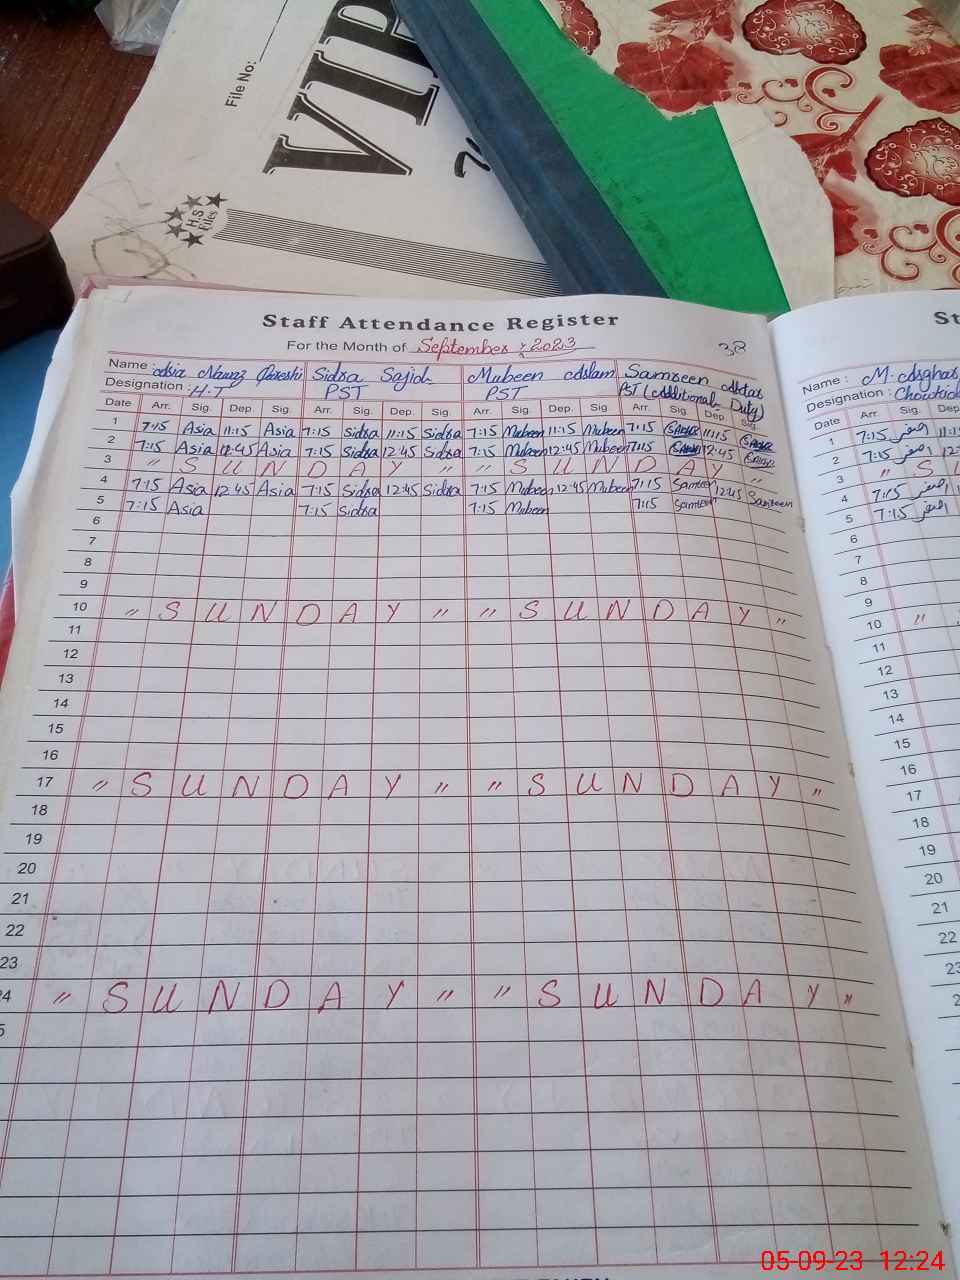 File No:
VIP
H.S Files
Staff Attendance Register
For the Month of September, 2023
38
Name: Asia Nawaz Qureshi Sidra Sajid Mubeen Aslam Samreen Akhtar
Designation: H.T PST PST PST (Additional Duty)
Date Arr. Sig. Dep. Sig. Arr. Sig. Dep. Sig. Arr. Sig. Dep. Sig. Arr. Sig. Dep. Sig.
1 7:15 Asia 11:15 Asia 7:15 Sidra 11:15 Sidra 7:15 Mubeen 11:15 Mubeen 7:15 11:15
2 7:15 Asia 12:45 Asia 7:15 Sidra 12:45 Sidra 7:15 Mubeen 12:45 Mubeen 7:15 12:45
3 " S U N D A Y " " S U N D A Y "
4 7:15 Asia 12:45 Asia 7:15 Sidra 12:45 Sidra 7:15 Mubeen 12:45 Mubeen 7:15 Samreen 12:45 Samreen
5 7:15 Asia 7:15 Sidra 7:15 Mubeen 7:15 Samreen
6
7
8
9
10 " S U N D A Y " " S U N D A Y "
11
12
13
14
15
16
17 " S U N D A Y " " S U N D A Y "
18
19
20
21
22
23
24 " S U N D A Y " " S U N D A Y "
5
St
Name: M. Asghar
Designation: Chowkid
Date Arr. Sig. Dep
1 7:15 اصغر 11:1
2 7:15 اصغر 12:
3 " S U
4 7:15 اصغر
5 7:15 اصغر
6
7
8
9
10 "
11
12
13
14
15
16
17
18
19
20
21
22
23
2
05-09-23 12:24